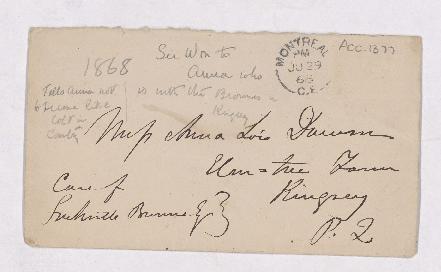 ACC-1377
MONTREAL
PM
JU 29
68
C.E.
1868
Sir Wm to
Anna who
is with the Browns in
Kingsey
Tells Anna not
to become like
colt in
country
Miss Anna Lois Dawson
Elm-tree Farm
Kingsey
P. Q.
Care of
Browne Esq